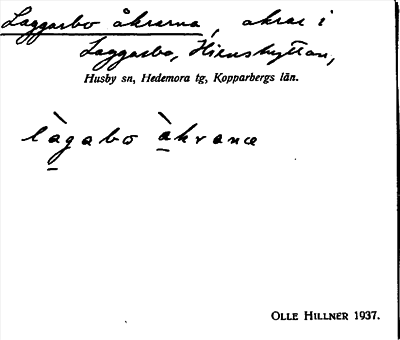 Laggarbo åkrarna, åkrar i
Laggarbo, Hienshyttan,
Husby sn, Hedemora tg, Kopparbergs län.
làgabo àkrana
OLLE HILLNER 1937.